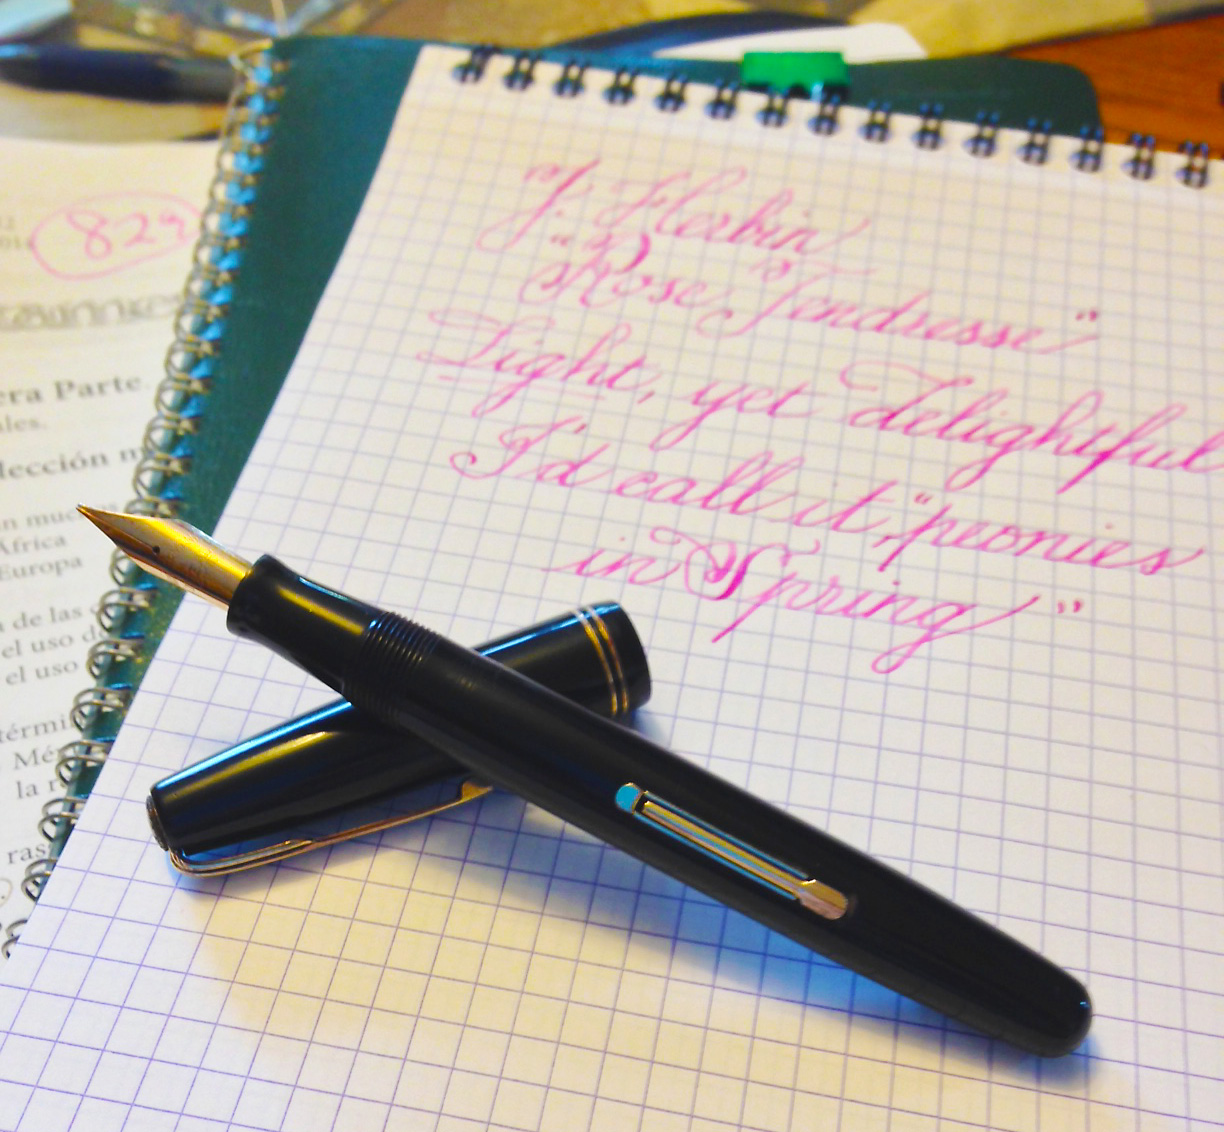 J. Herbin
"Rose Tendresse"
Light, yet delightful
I'd call it, "peonies
in Spring"
829
era Parte
ales.
lección m
n muc
África
Europa
a de las
el uso d
el uso
térmi
Mé
la r
ras